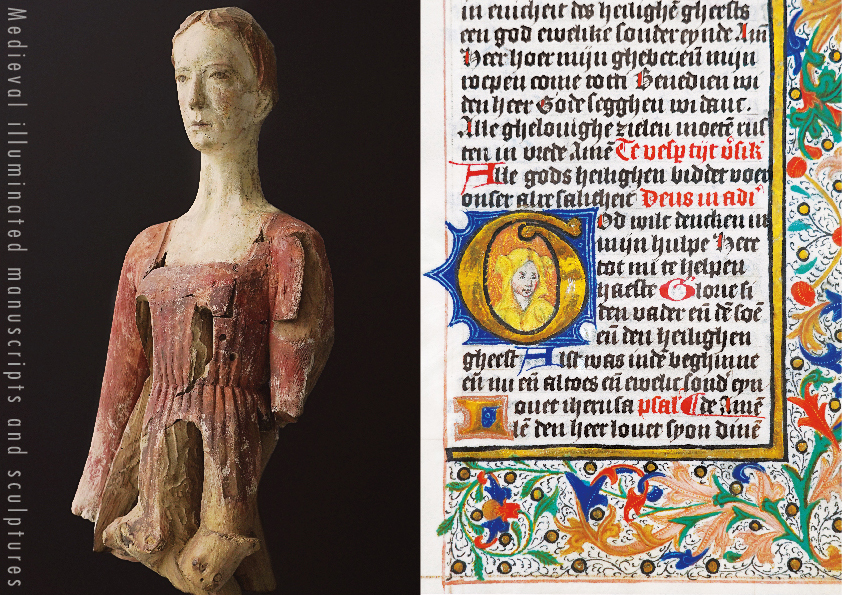 Medieval illuminated manuscripts and sculptures
in einicheit des heilighē gheests
een god ewelike sonder eynde Amē
Heer hoer mijn ghebet eñ mijn
roepen come tot di Benedien wi
den heer Gode segghen wi danc.
Alle ghelouighe zielen moetē rus
ten in vrede Amē Te vesp tijt
Alle gods heilighen biddet voer
onser alre salicheit Deus in adi
God wilt dencken in
mijn hulpe Here
tot mi te helpen
haeste Glorie si
den vader eñ dē soē
eñ den heilighen
gheest Alst was indē beghinne
eñ nu eñ altoes eñ ewelic sond eyn
Louet iherusa psal de Amē
lē den heer louet syon dinē